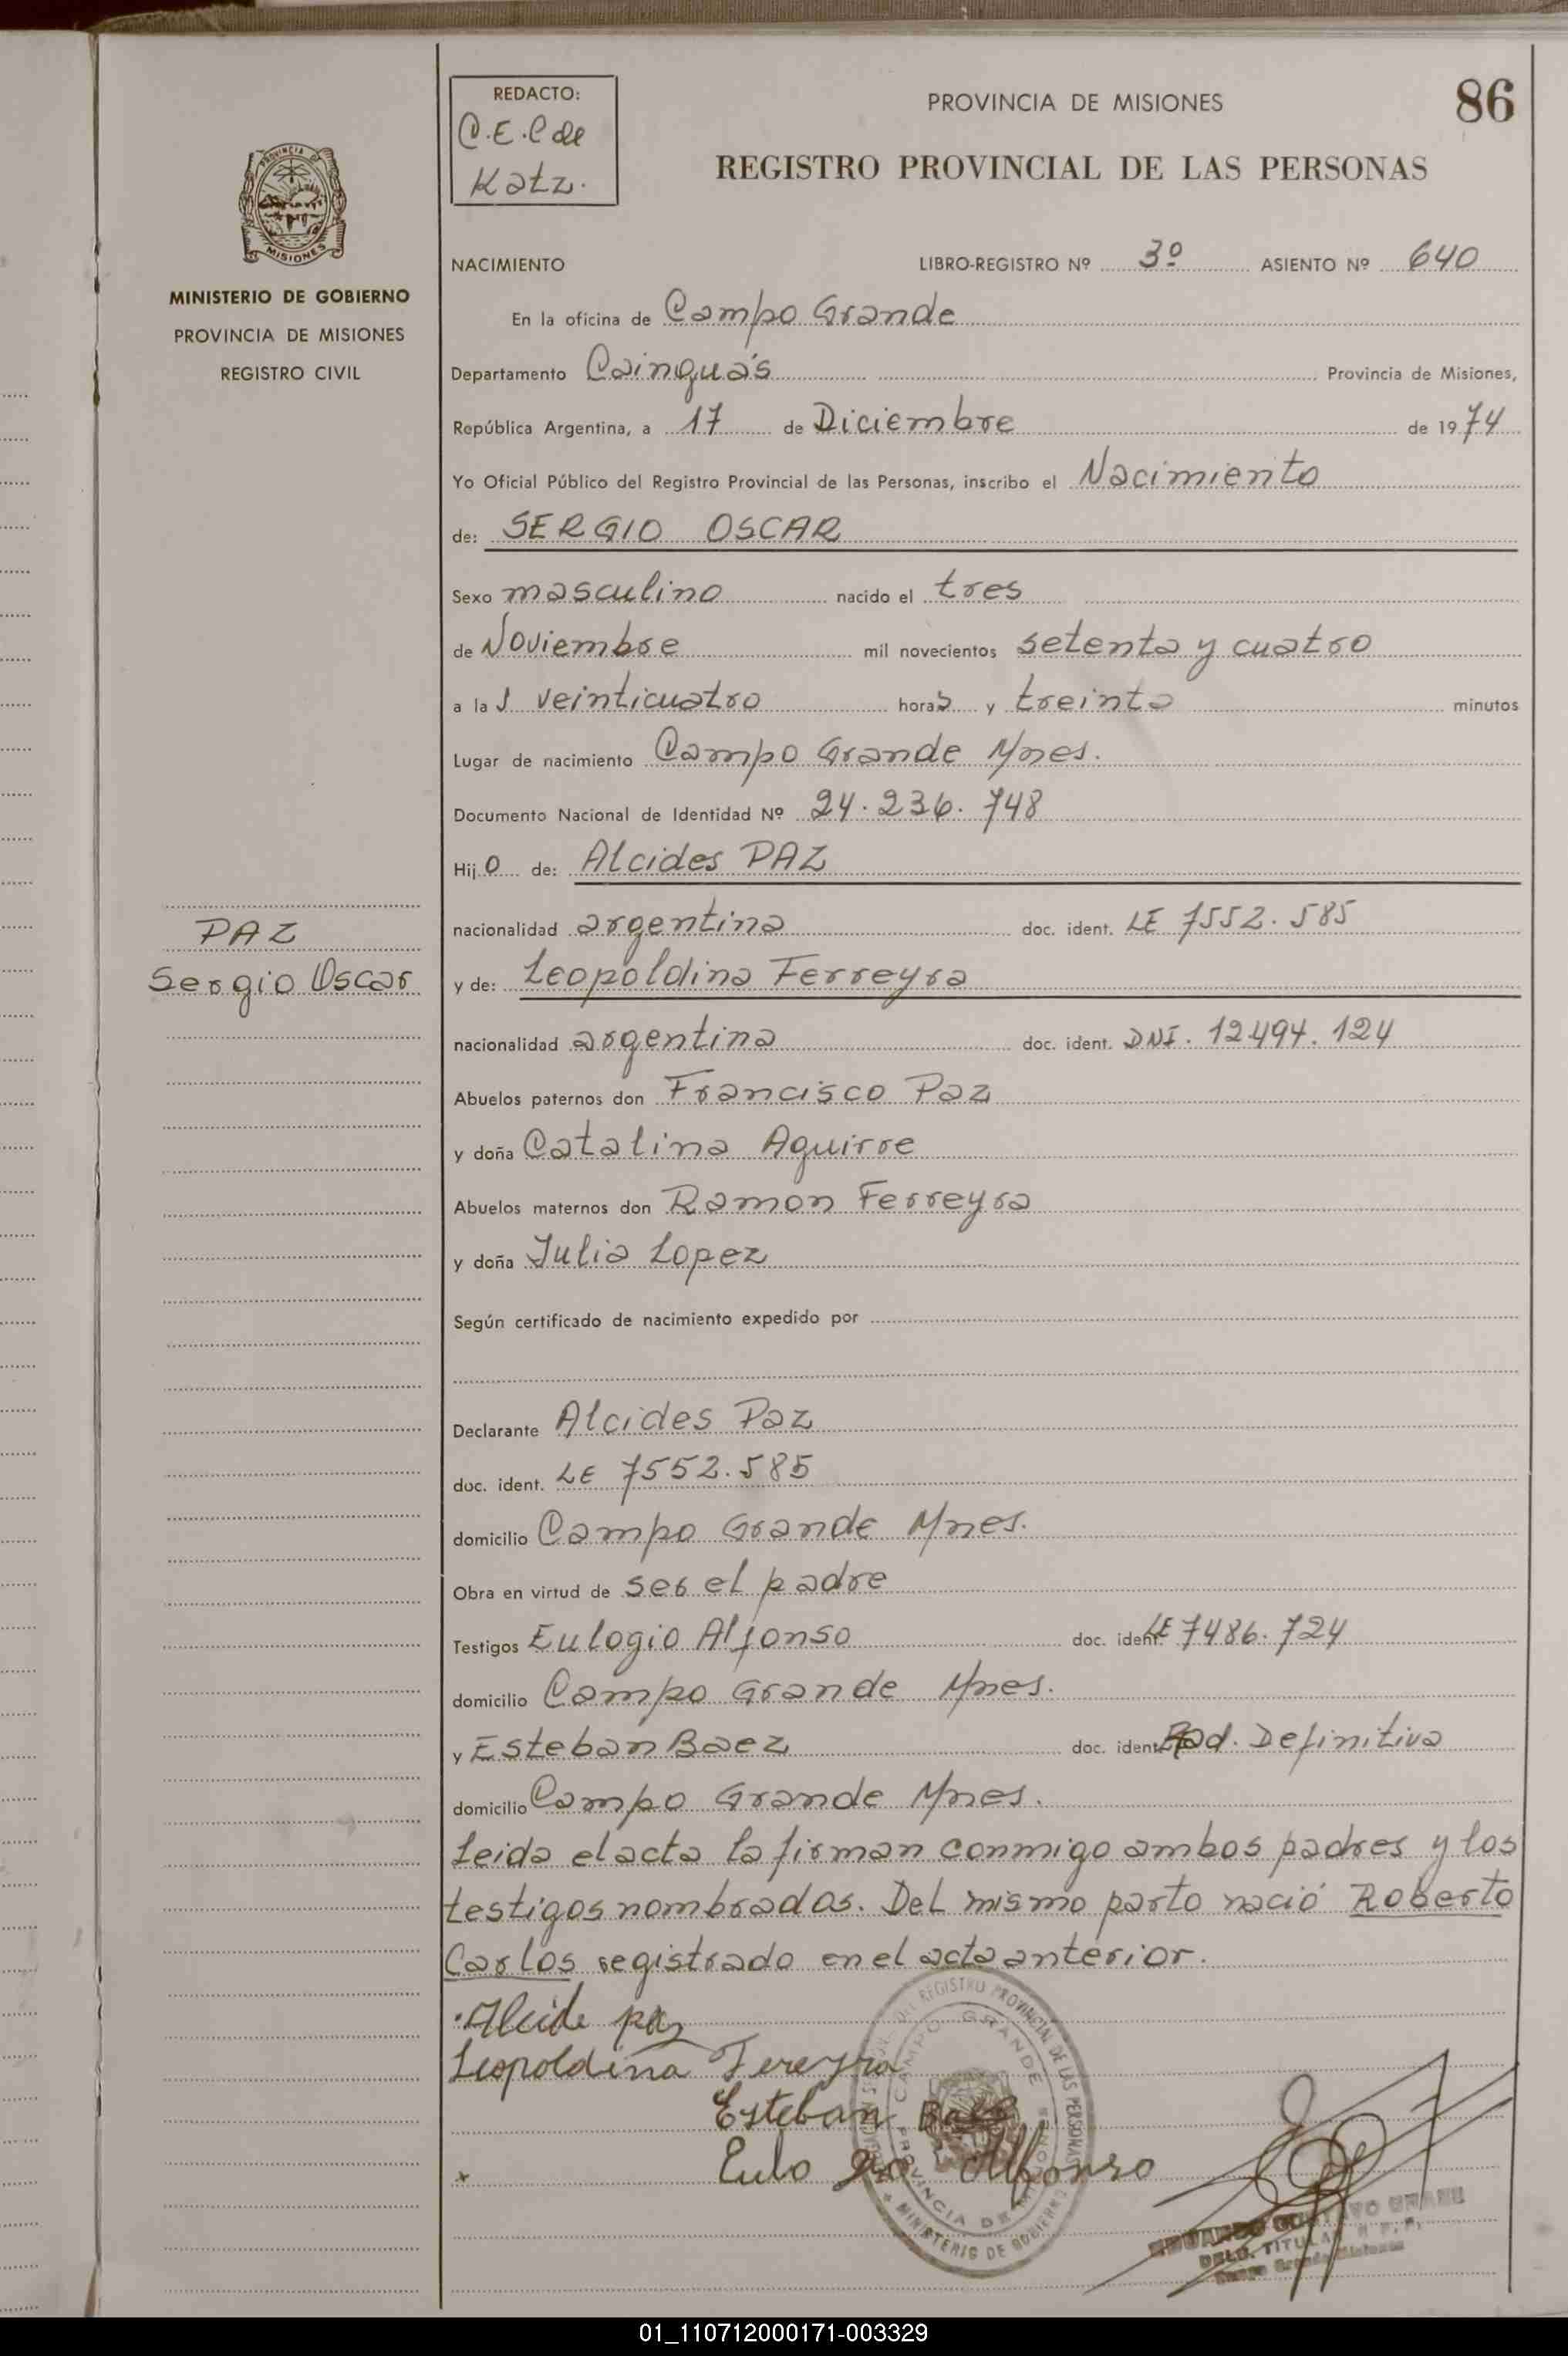 REDACTO:
C.E.C de
Katz.
PROVINCIA DE MISIONES
86
REGISTRO PROVINCIAL DE LAS PERSONAS
PROVINCIA DE
MISIONES
MINISTERIO DE GOBIERNO
PROVINCIA DE MISIONES
REGISTRO CIVIL
NACIMIENTO LIBRO-REGISTRO Nº 3º ASIENTO Nº 640
En la oficina de Campo Grande
Departamento Cainguás Provincia de Misiones,
República Argentina, a 17 de Diciembre de 1974
Yo Oficial Público del Registro Provincial de las Personas, inscribo el Nacimiento
de: SERGIO OSCAR
Sexo masculino nacido el tres
de Noviembre mil novecientos setenta y cuatro
a las veinticuatro horas y treinta minutos
Lugar de nacimiento Campo Grande Mnes.
Documento Nacional de Identidad Nº 24.236.748
Hijo de: Alcides PAZ
nacionalidad argentina doc. ident. LE 7552.585
PAZ
Sergio Oscar
y de: Leopoldina Ferreyra
nacionalidad argentina doc. ident. DNI. 12494.124
Abuelos paternos don Francisco Paz
y doña Catalina Aguirre
Abuelos maternos don Ramon Ferreyra
y doña Julia Lopez
Según certificado de nacimiento expedido por
Declarante Alcides Paz
doc. ident. LE 7552.585
domicilio Campo Grande Mnes.
Obra en virtud de ser el padre
Testigos Eulogio Alfonso doc. ident. LE 7486.724
domicilio Campo Grande Mnes.
y Esteban Baez doc. ident. Rad. Definitiva
domicilio Campo Grande Mnes.
Leida el acta la firman conmigo ambos padres y los
testigos nombrados. Del mismo parto nació Roberto
Carlos registrado en el acta anterior.
Alcide paz
Leopoldina Fereyra
Esteban
Eulo gio Alfonso
DEL REGISTRO PROVINCIAL DE LAS PERSONAS
CAMPO GRANDE
PROVINCIA DE MISIONES
MINISTERIO DE GOBIERNO
DELG. TITULAR
Campo Grande Misiones
01_110712000171-003329